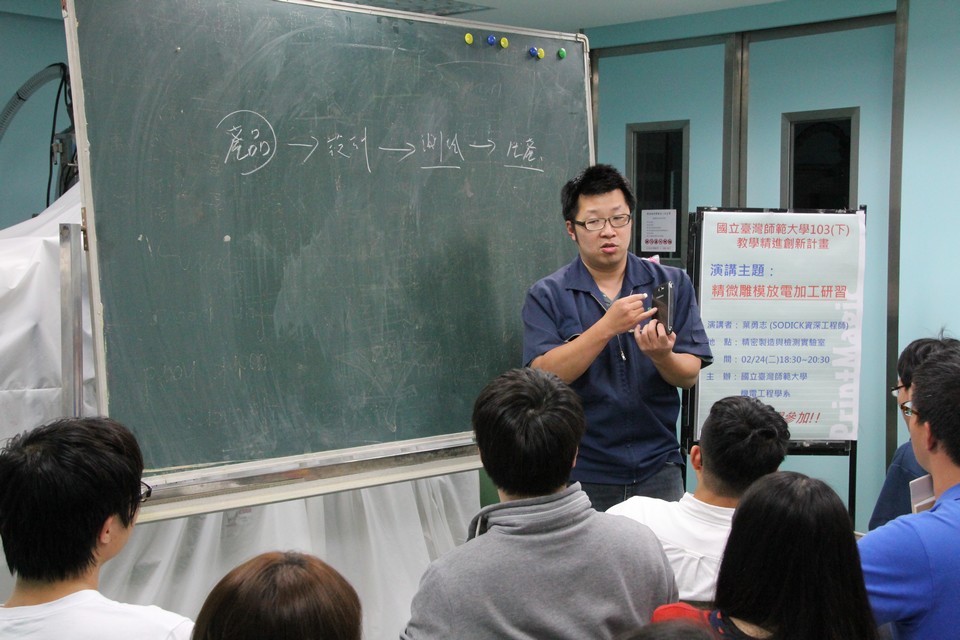 產品 → 設計 → 測試 → 生產
國立臺灣師範大學103(下)
教學精進創新計畫
演講主題：
精微雕模放電加工研習
演講者：葉勇志 (SODICK資深工程師)
地 點：精密製造與檢測實驗室
間：02/24(二)18:30~20:30
主 辦：國立臺灣師範大學
機電工程學系
參加!!
PrintMaster